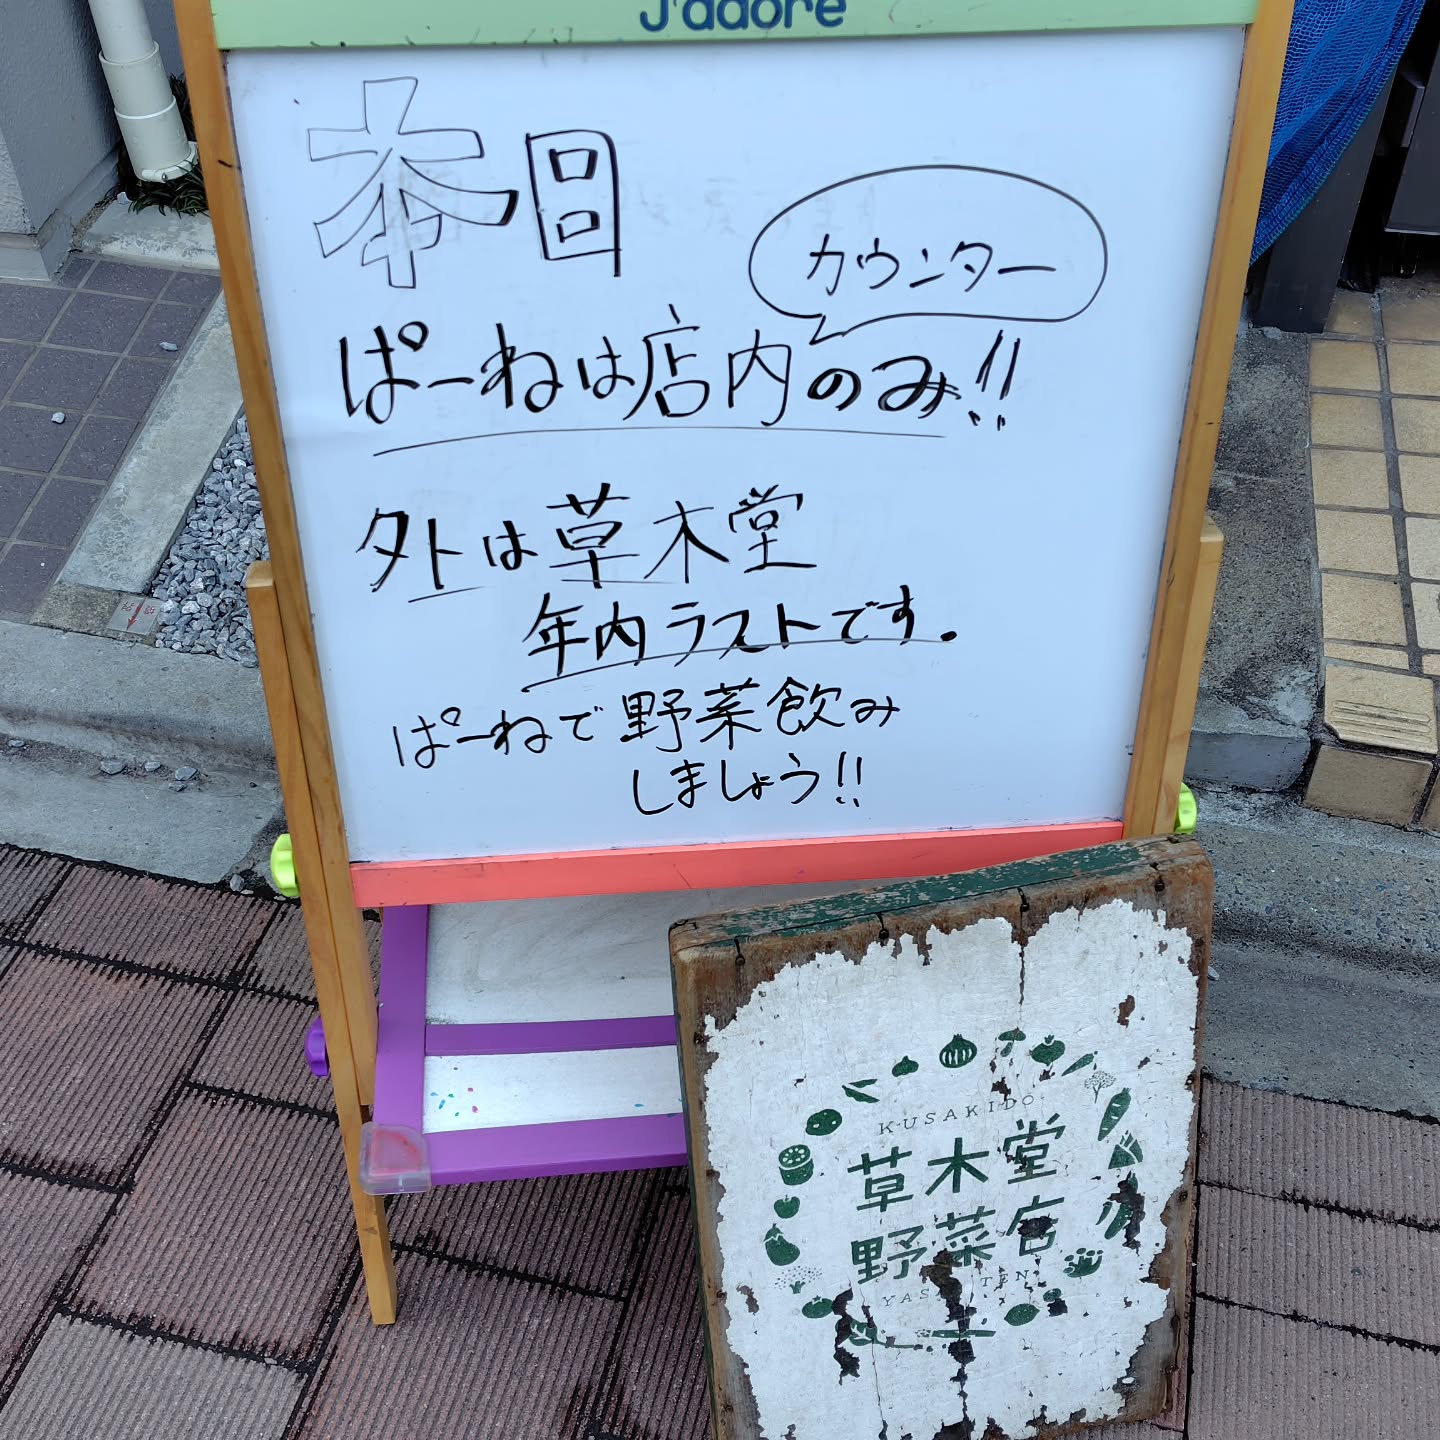 J'adore
本日
カウンター
ぱーねは店内のみ!!
外は草木堂
年内ラストです.
ぱーねで野菜飲み
しましょう!!
KUSAKIDO
草木堂
野菜店
TEN